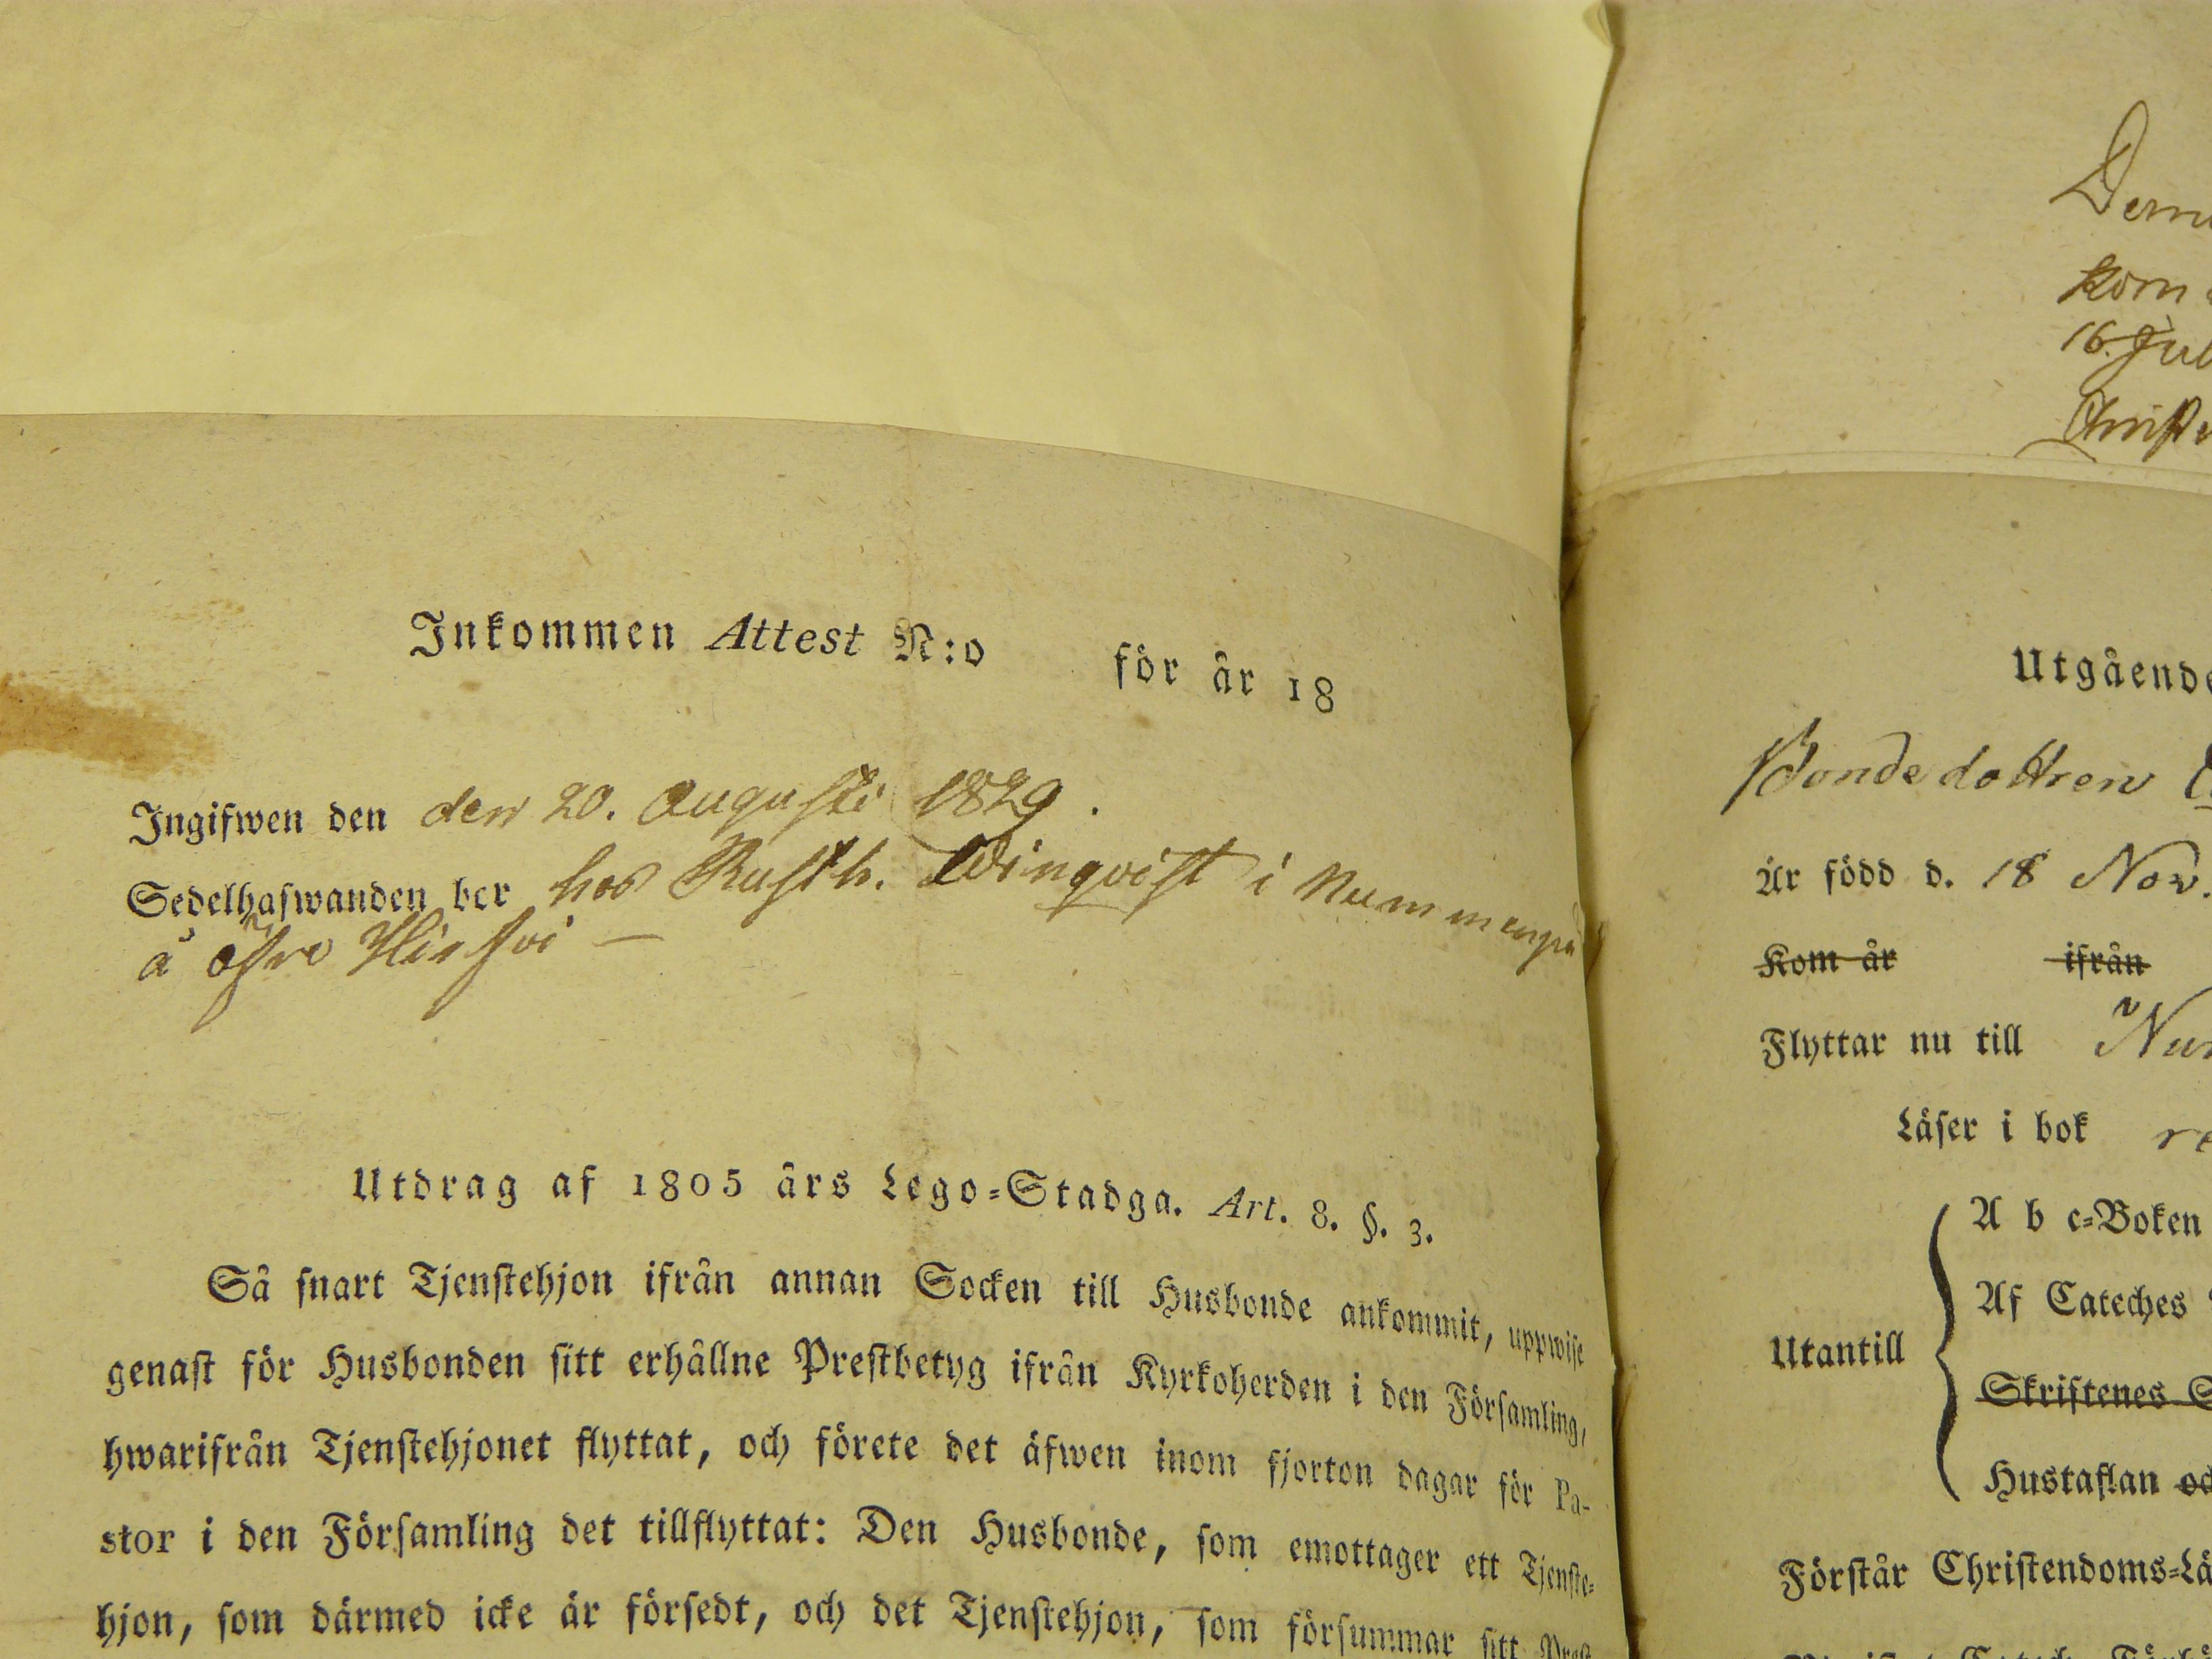 Inkommen Attest N:o för år 18
Ingifwen den den 20. Augusti 1829.
Sedelhafwanden bor hos Rusth. Winqvist i Nummenpä
å öfre Hirfvi —
Utdrag af 1805 års Lego-Stadga. Art. 8. §. 3.
Så snart Tjenstehjon ifrån annan Socken till Husbonde ankommit, uppwise
genast för Husbonden sitt erhållne Prestbetyg ifrån Kyrkoherden i den Församling,
hwarifrån Tjenstehjonet flyttat, och förete det äfwen inom fjorton dagar för Pa-
stor i den Församling det tillflyttat: Den Husbonde, som emottager ett Tjenste-
hjon, som därmed icke är försedt, och det Tjenstehjon, som försummar sitt Prest
Kom
16. Jul
Utgående
Bondedottren
Är född d. 18 Nov.
Kom år ifrån
Flyttar nu till Nu
Läser i bok
Utantill
A b c-Boken
Af Cateches
Skriftenes S
Hustaflan oc
Förstår Christendoms-Lä